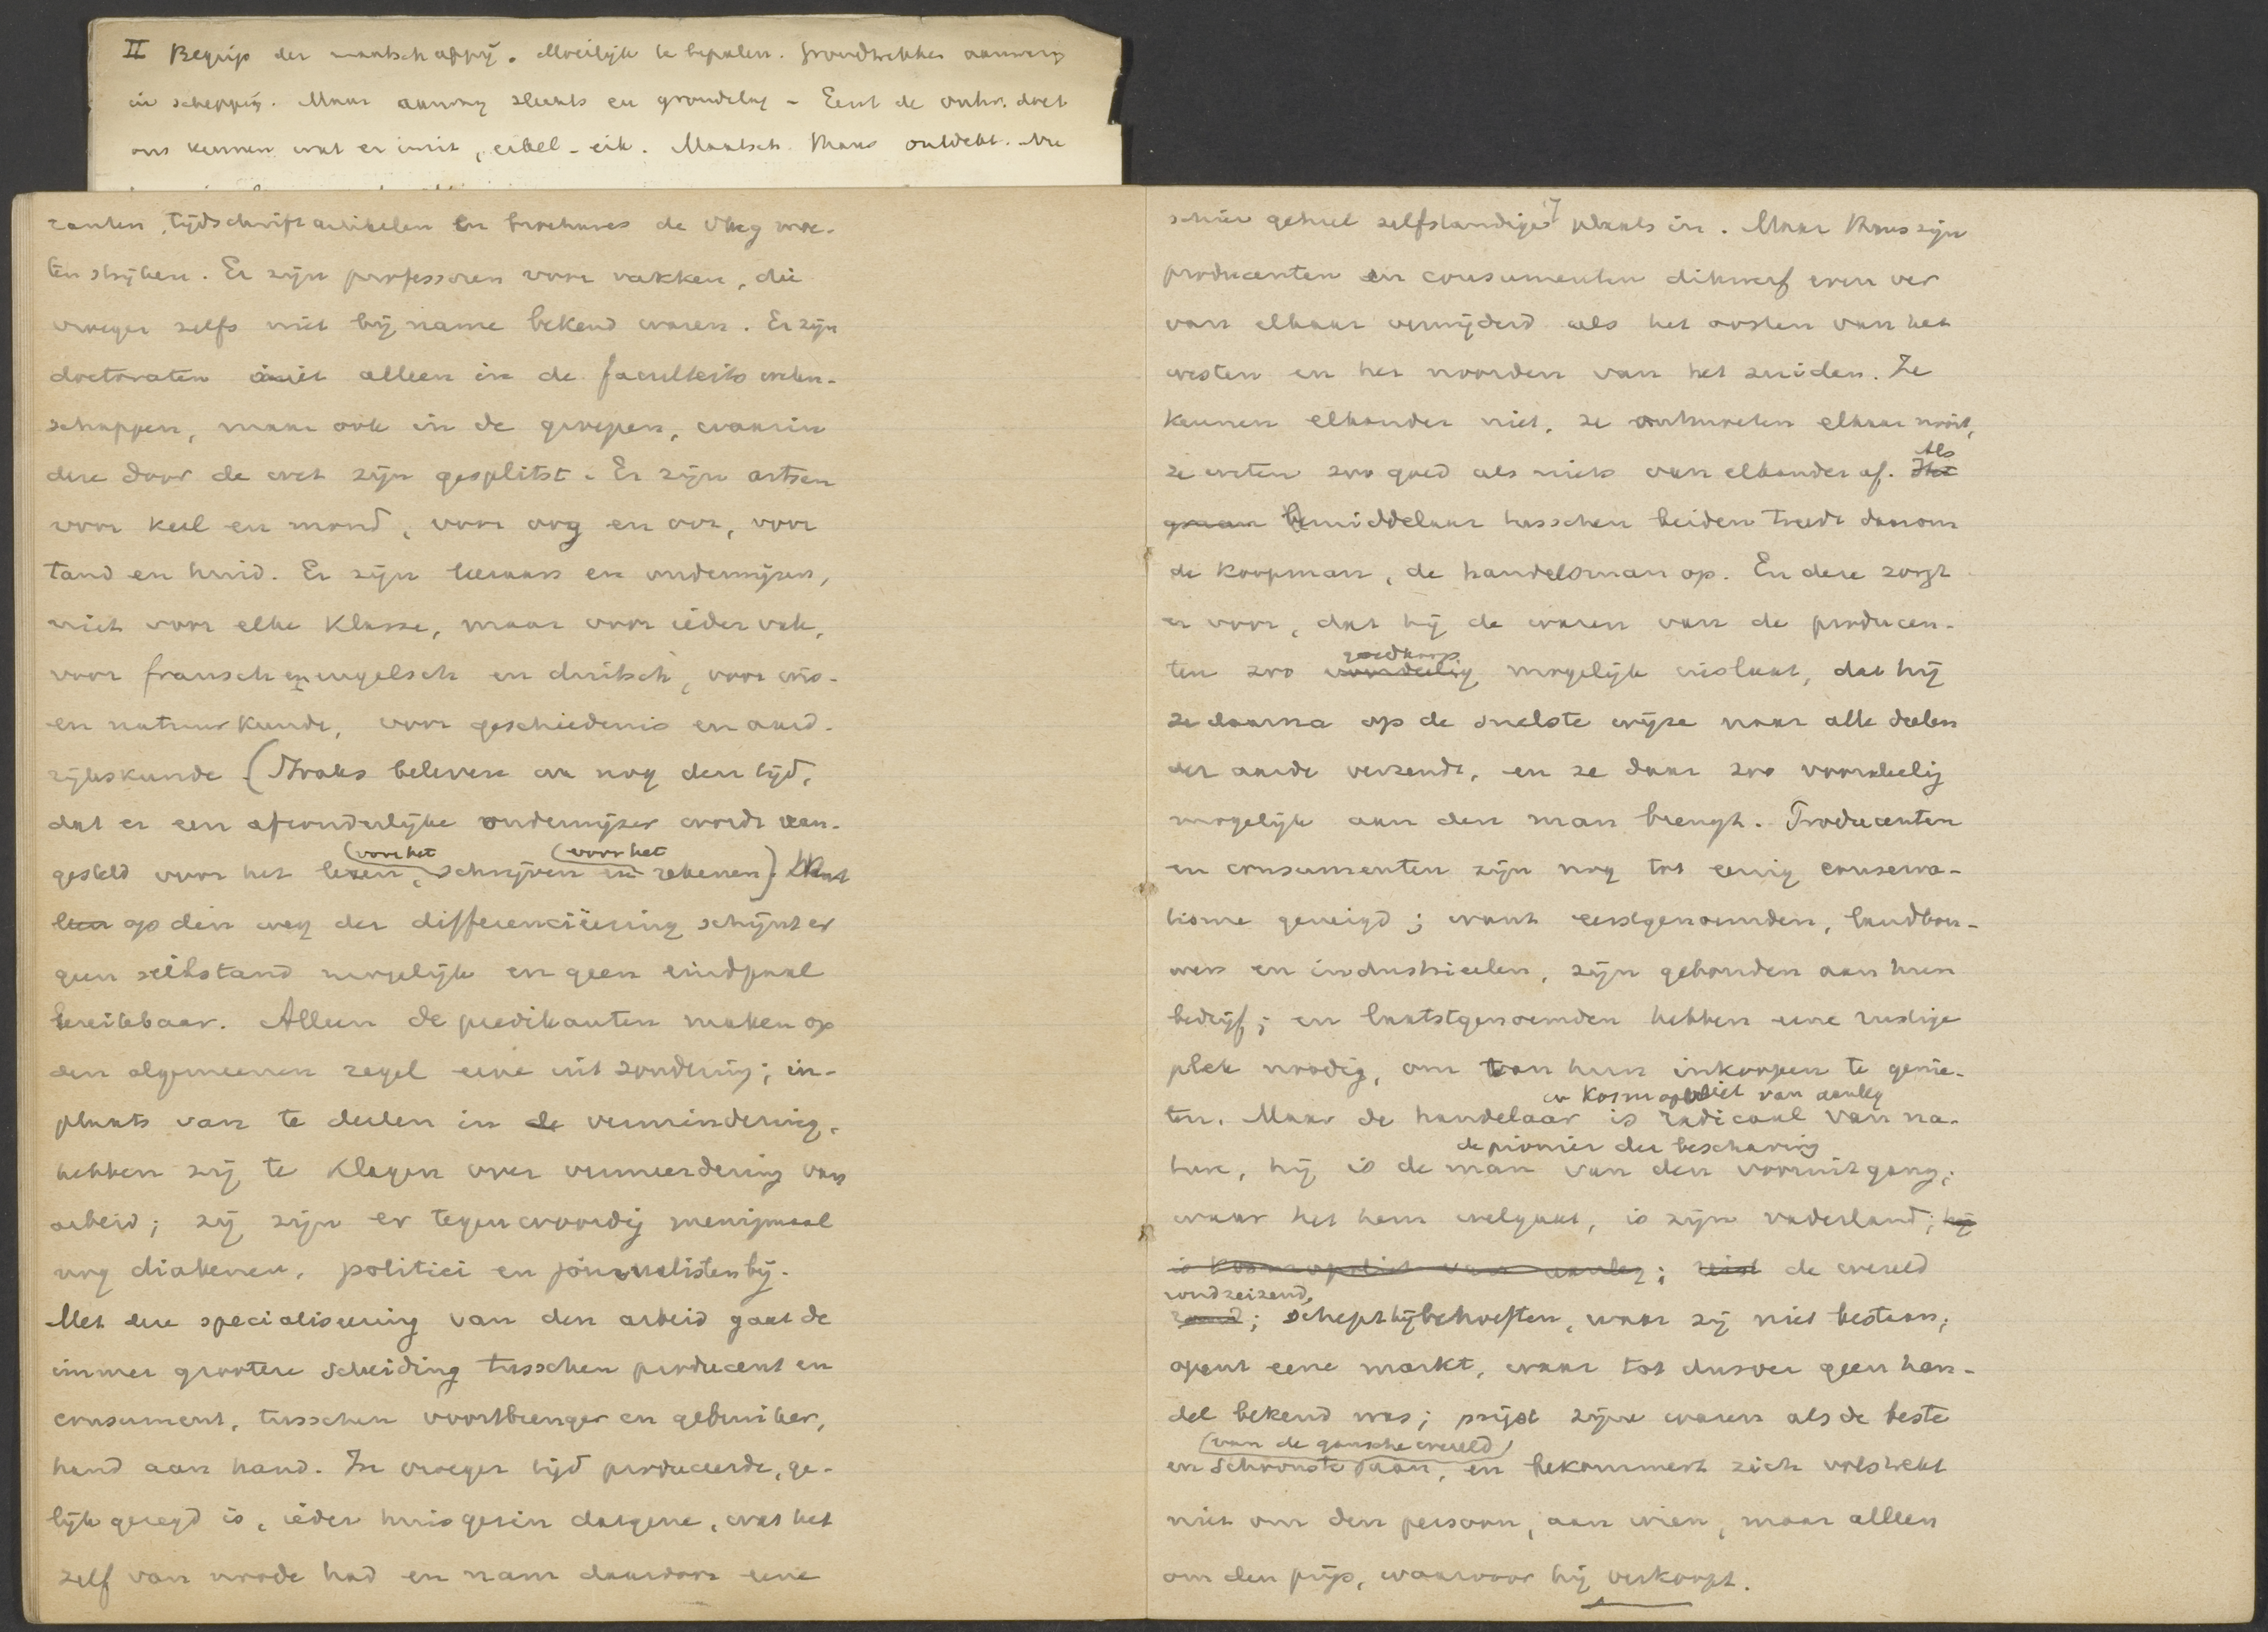 II Begrip der maatschappij. Moeilijk te bepalen. Grondtrekken aanwezig
in schepping. Maar aanweg slechts en grondslag - Eerst de ontw. doet
ons kennen wat er in zit, eikel-eik. Maatsch. thans ontdekt. Nu
ranten, tijdschriftartikelen en brochures de vlag moe-
ten strijken. Er zijn professoren voor vakken, die
vroeger zelfs niet bij name bekend waren. Er zijn
doctoraten niet alleen in de faculteits weten-
schappen, maar ook in de groepen, waarin
deze door de wet zijn gesplitst. Er zijn artsen
voor keel en mond, voor oog en oor, voor
tand en huid. Er zijn leeraars en onderwijzers,
niet voor elke klasse, maar voor ieder vak,
voor fransch en engelsch en duitsch, voor wis-
en natuurkunde, voor geschiedenis en aard-
rijkskunde (Straks beleven we nog den tijd,
dat er een afzonderlijke onderwijzer wordt aan-
(voor het (voor het
gesteld voor het lezen, schrijven en rekenen). Want
op den weg der differenciëering schijnt er
geen stilstand mogelijk en geen eindpaal
bereikbaar. Alleen de predikanten maken op
den algemeenen regel eene uitzondering; in-
plaats van te deelen in de vermindering,
hebben zij te klagen over vermeerdering van
arbeid; zij zijn er tegenwoordig menigmaal
nog diakenen, politici en journalisten bij.
Met deze specialiseering van den arbeid gaat de
immer grootere scheiding tusschen producent en
consument, tusschen voortbrenger en gebruiker,
hand aan hand. In vroeger tijd produceerde, ge-
lijk gezegd is, ieder huisgezin datgene, wat het
zelf van noode had en nam daardoor eene
schier geheel zelfstandige plaats in. Maar thans zijn
producenten en consumenten dikwerf even ver
van elkaar verwijderd als het oosten van het
westen en het noorden van het zuiden. Ze
kennen elkander niet, ze ontmoeten elkaar nooit,
Als
ze weten zoo goed als niets van elkander af. Het
bemiddelaar tusschen beiden treedt daarom
de koopman, de handelsman op. En deze zorgt
er voor, dat hij de waren van de producen-
goedkoop
ten zoo voordeelig mogelijk inslaat, dat hij
ze daarna op de snelste wijze naar alle deelen
der aarde verzendt, en ze daar zoo voordeelig
mogelijk aan den man brengt. Producenten
en consumenten zijn nog tot eenig conserva-
tisme geneigd; want eerstgenoemden, landbou-
wers en industrieelen, zijn gebonden aan hun
bedrijf; en laatstgenoemden hebben eene rustige
plek noodig, om van hun inkoopen te genie-
en kosmopoliet van aanleg
ten. Maar de handelaar is radicaal van na-
de pionier der beschaving
ture, hij is de man van den vooruitgang;
waar het hem welgaat, is zijn vaderland; hij
is kosmopoliet van aanleg; reist de wereld
rondreizend,
rond; schept hij behoeften, waar zij niet bestaan;
opent eene markt, waar tot dusver geen han-
del bekend was; prijst zijne waren als de beste
(van de gansche wereld)
en schoonste aan, en bekommert zich volstrekt
niet om den persoon, aan wien, maar alleen
om den prijs, waarvoor hij verkoopt.